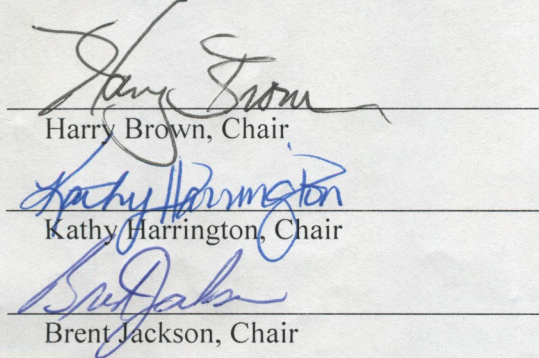 Harry Brown
Harry Brown, Chair
Kathy Harrington
Kathy Harrington, Chair
Brent Jackson
Brent Jackson, Chair